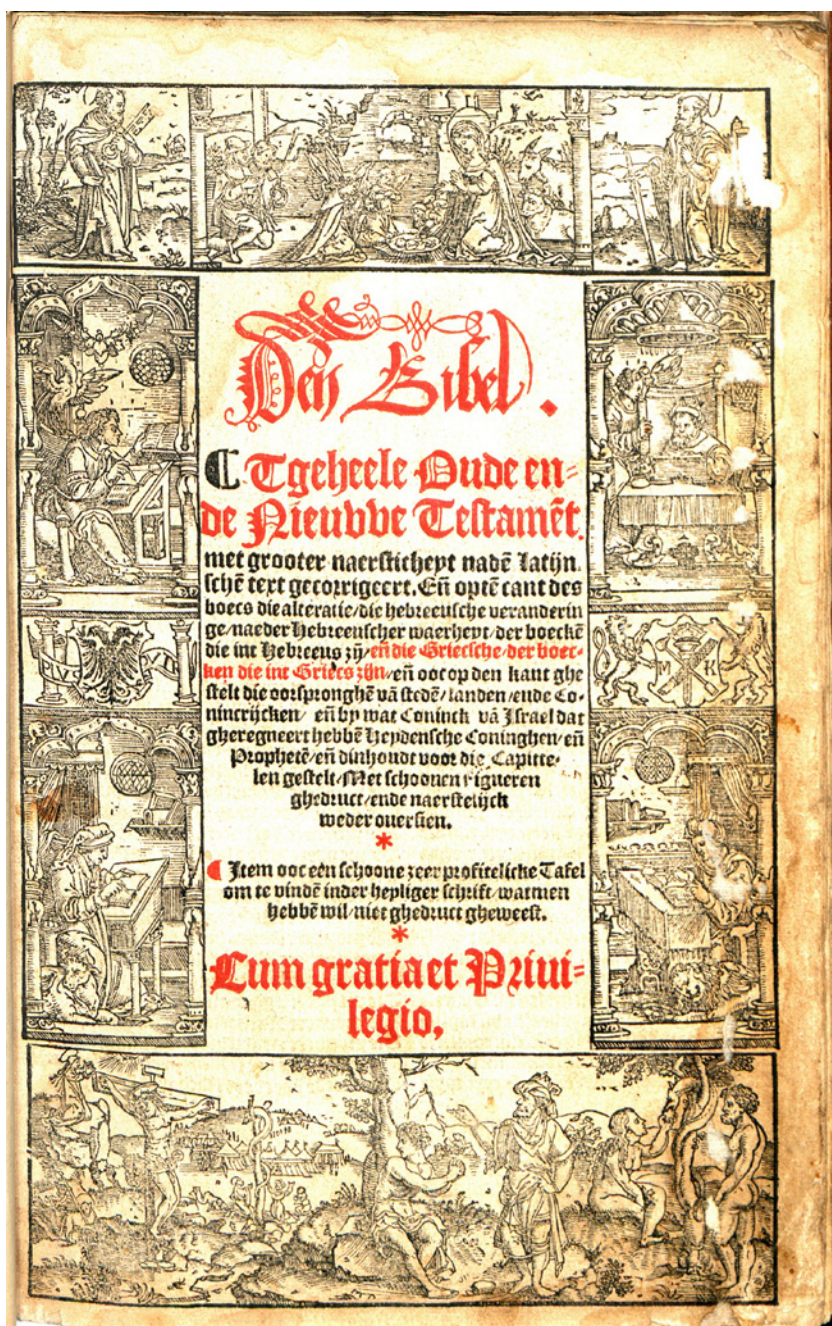 Den Bibel.
¶ Tgeheele Oude en=
de Nieuvve Testamēt.
met grooter naersticheyt nadē Latijn
schē text gecorrigeert. Eñ optē cant des
boecs die alteratie/die hebreeusche veranderin
ge/naeder Hebreeuscher waerheyt/der boeckē
die int Hebreeus zÿ/eñ die Griecsche/der boec=
ken die int Griecs zijn/eñ ooc op den kant ghe
stelt die oorspronghē vā stedē/landen/ende Co=
nincrijcken/ eñ by wat Coninck vā Israel dat
gheregneert hebbē Heydensche Coninghen/eñ
Prophetē/eñ dinhoudt voor die Capitte=
len gestelt/Met schoonen Figueren
ghedruct/ende naerstelijck
weder ouersien.
*
¶ Item ooc een schoone zeer profitelicke Tafel
om te vindē inder heyliger schrift/watmen
hebbē wil/niet ghedruct gheweest.
*
Cum gratia et Priui=
legio,
PLVS
M K